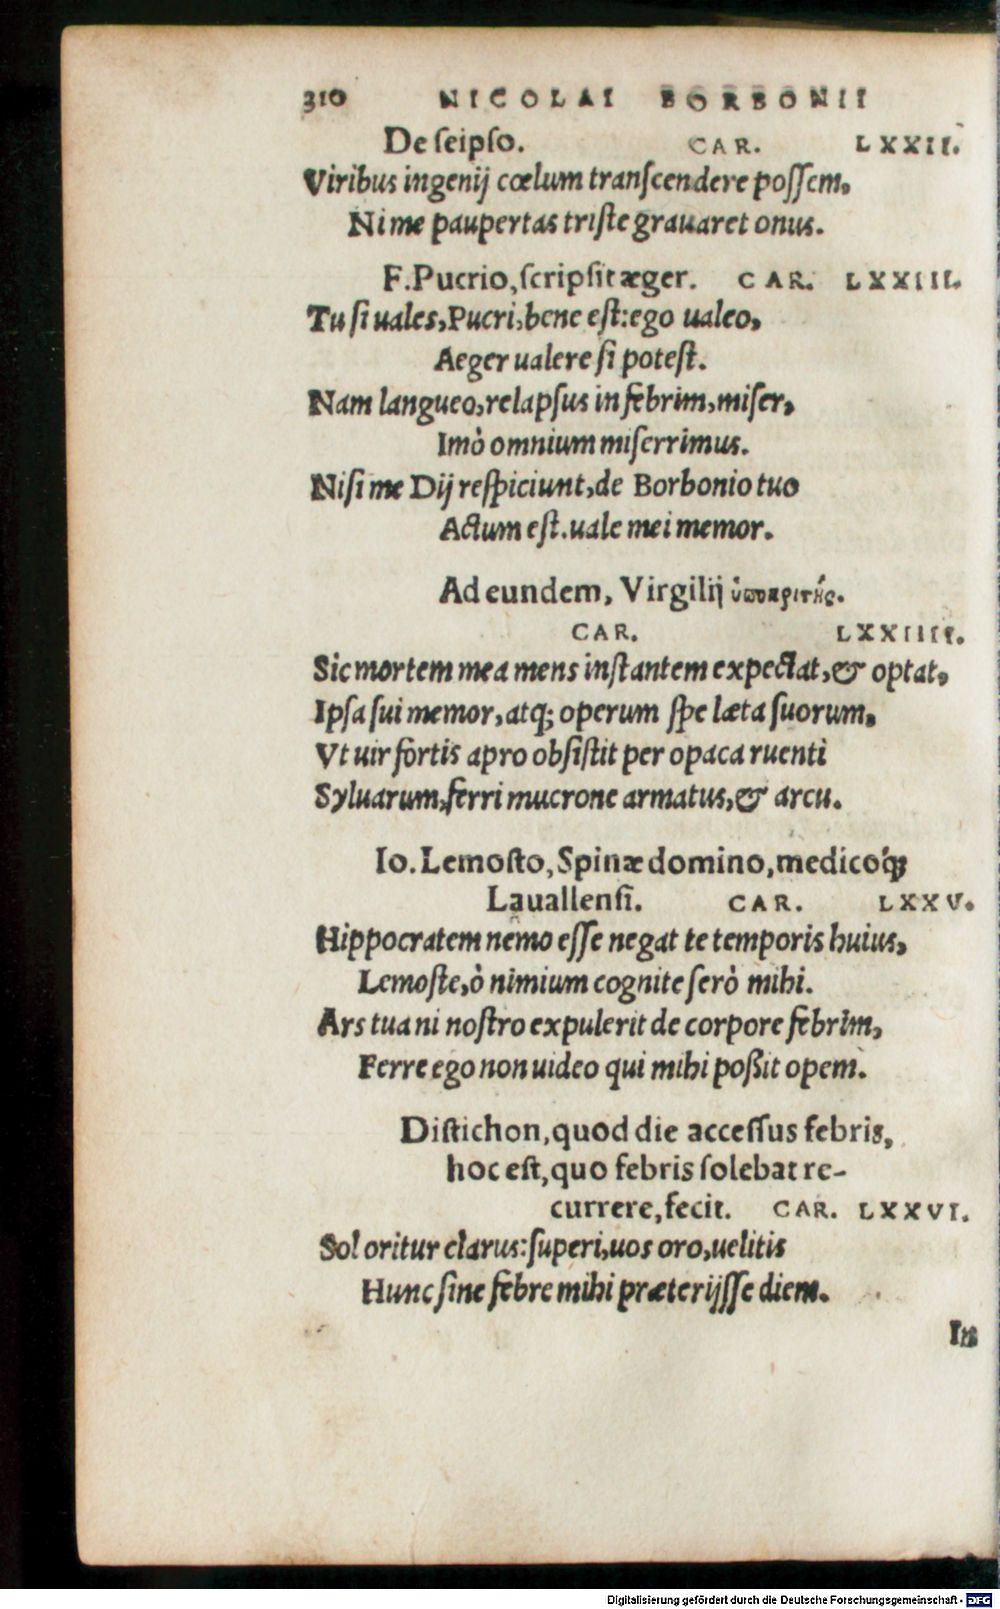 310 NICOLAI BORBONII
De seipso. CAR. LXXII.
Viribus ingenij cœlum transcendere possem,
Ni me paupertas triste grauaret onus.
F. Pucrio, scripsit æger. CAR. LXXIII.
Tu si uales, Pucri, bene est: ego ualeo,
Aeger ualere si potest.
Nam langueo, relapsus in febrim, miser,
Imò omnium miserrimus.
Nisi me Dij respiciunt, de Borbonio tuo
Actum est. uale mei memor.
Ad eundem, Virgilij
CAR. LXXIIII.
Sic mortem mea mens instantem expectat, & optat,
Ipsa sui memor, atq; operum spe læta suorum,
Vt uir fortis apro obsistit per opaca ruenti
Syluarum, ferri mucrone armatus, & arcu.
Io. Lemosto, Spinæ domino, medicoq́;
Lauallensi. CAR. LXXV.
Hippocratem nemo esse negat te temporis huius,
Lemoste, ò nimium cognite serò mihi.
Ars tua ni nostro expulerit de corpore febrim,
Ferre ego non uideo qui mihi poßit opem.
Distichon, quod die accessus febris,
hoc est, quo febris solebat re-
currere, fecit. CAR. LXXVI.
Sol oritur clarus: superi, uos oro, uelitis
Hunc sine febre mihi præterijsse diem.
In
Digitalisierung gefördert durch die Deutsche Forschungsgemeinschaft - DFG